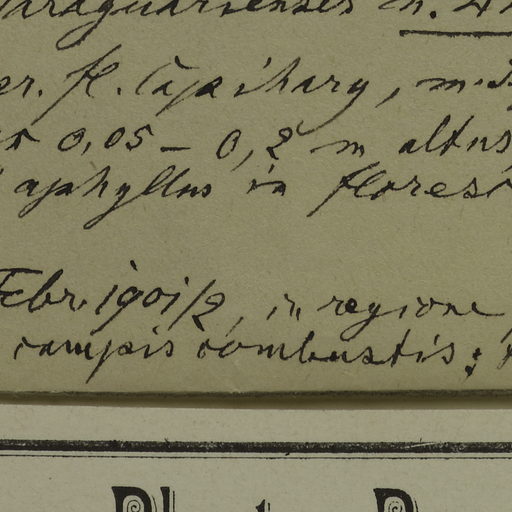 Paraguarienses n. 4
fl. Capihary, m.
0,05 – 0,2 m altus,
aphyllus in
Febr. 1901/2, in regione
campis combustis;